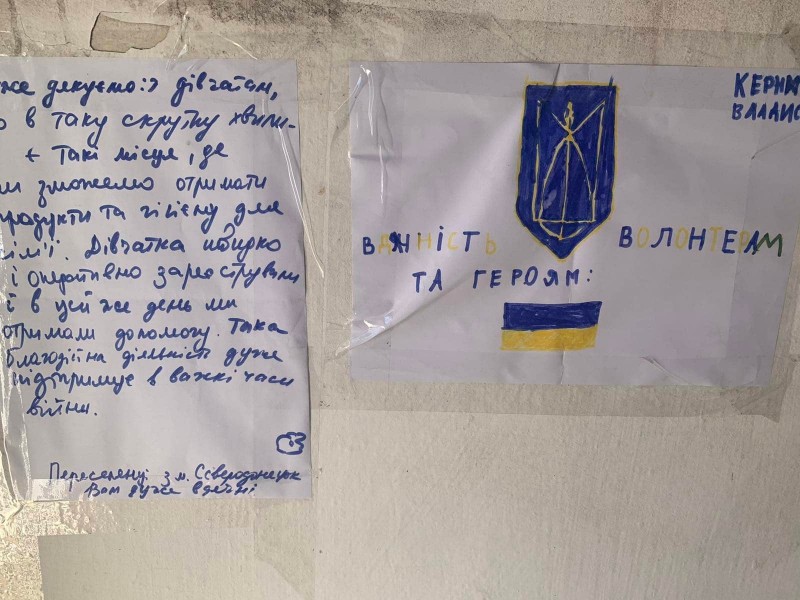 же дякуємо:) дівчатам,
о в таку скрутну хвили-
є такі місця, де
ми зможемо отримати
продукти та гігієну для
сім'ї. Дівчатка швидко
і оперативно зареєстрували
і в цей же день ми
отримали допомогу. Така
благодійна діяльність дуже
підтримує в важкі часи
війни.
Переселенці з м. Сєвєродонецьк
Вам дуже вдячні
КЕРНИ
ВЛАДИС
ВДЯЧНІСТЬ ВОЛОНТЕРАМ
ТА ГЕРОЯМ: